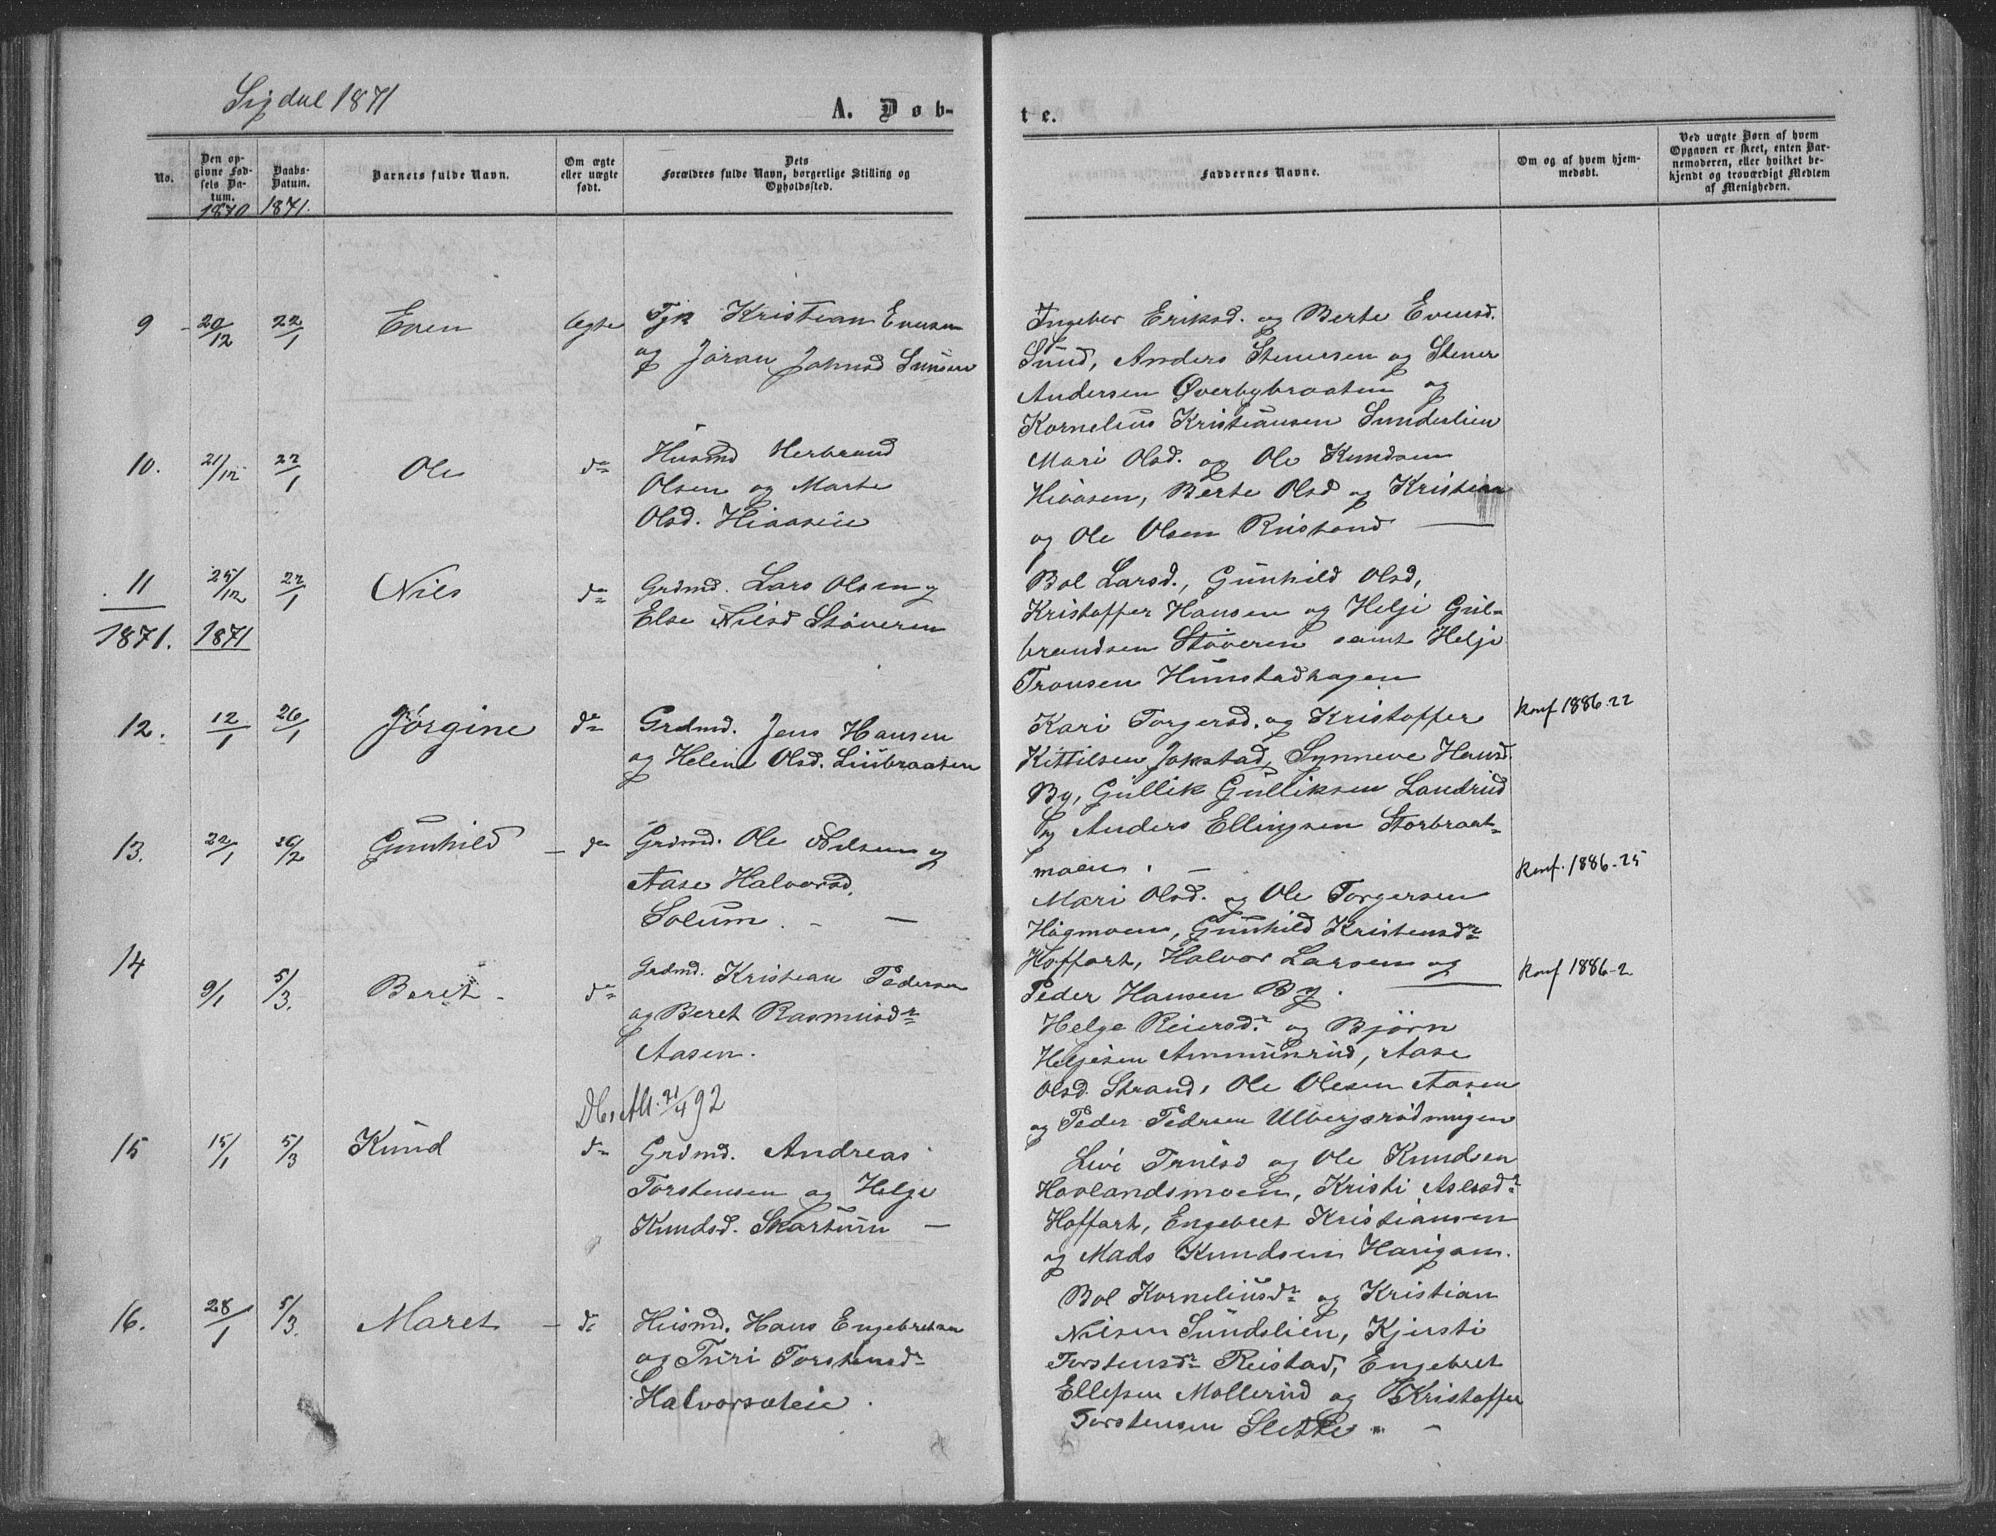 Sigdal 1871
A. Døb-
te.
No.
Den op-
givne Fød-
sels Da-
tum.
1870
Daabs-
Datum.
1871.
Barnets fulde Navn.
Om ægte
eller uægte
født.
Dets
Forældres fulde Navn, borgerlige Stilling og
Opholdssted.
Faddernes Navne.
Om og af hvem hjem-
medøbt.
Ved uægte Børn af hvem
Opgaven er skeet, enten Bar-
nemoderen, eller hvilket be-
kjendt og troværdigt Medlem
af Menigheden.
9 20/12 22/1 Even ægte
Tjk Kristian Evensen
og Jøran Johnsd Sunde
Ingebor Eriksd. og Berte Evensd.
Sund, Anders Stenersen og Stener
Andersen Øverbybraaten og
Kornelius Kristiansen Sunderlien
10. 21/12 22/1 Ole do
Husmd Herbrand
Olsen og Marte
Olsd. Hiaaseie
Mari Olsd. og Ole Knudsen
Hiaasen, Berte Olsd og Kristian
og Ole Olsen Ruistand
11 25/12 22/1 Nils do
1871. 1871
Grdmd. Lars Olsen og
Else Nilsd Støveren
Bol Larsd., Gunhild Olsd,
Kristoffer Hansen og Helje Gul-
brandsen Støveren samt Helje
Tronsen Hunstadhagen
12. 12/1 26/1 Jørgine do
Grdmd. Jens Hansen
og Helene Olsd. Linbraaten
Kari Torgersd. og Kristoffer
Kittilsen Jokstad, Synneve Hansd.
By, Gullik Gulliksen Landrud
og Anders Ellingsen Storbraat-
moen.
konf 1886-22
13. 22/1 26/2 Gunhild do
Grdmd. Ole Nilsen og
Aase Halvorsd.
Solum.
Mari Olsd. og Ole Torgersen
Hagmoen, Gunhild Kristensdr
Hoffart, Halvor Larsen og
Peder Hansen By.
konf. 1886-25
14 9/1 5/3. Beret do
Grdmd. Kristian Pedersen
og Beret Rasmusdr
Aasen.
Helge Reiersdr og Bjørn
Heljesen Ammunrud, Aase
Olsd. Strand, Ole Olesen Aasen
og Peder Pedersen Ulbergsrødningen
konf 1886-2
Dbs Att. 21/4 92
15 15/1 5/3 Knud do
Grdmd. Andreas
Torstensen og Helge
Knudsd. Skartum
Live Trulsd og Ole Knudsen
Hovlandsmoen, Kristi Aslesdr
Hoffart, Engebret Kristiansen
og Mads Knudsen Harigam.
16. 28/1 5/3. Maret do
Husmd. Hans Engebretsen
og Turi Torstensdr
Halvorsøteie.
Bol Korneliusdr og Kristian
Nilsen Sundslien, Kjersti
Torstensdr Reistad, Engebret
Ellefsen Mollerud og Kristoffer
Torstensen Slette.